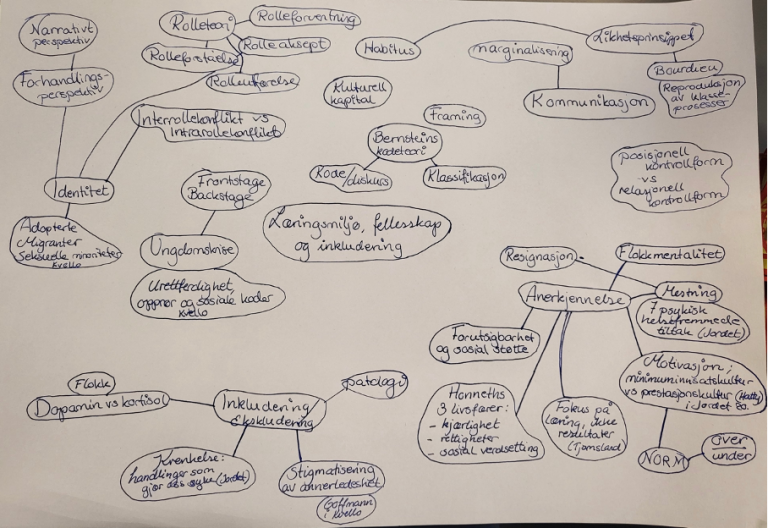 Narrativt
perspektiv
Forhandlings-
perspektiv
Rolleteori
Rolleforventning
Rolleaksept
Rolleforståelse
Rolleutførelse
Interrollekonflikt vs
Intrarollekonflikt
Identitet
Adopterte
Migranter
Seksuelle minoriteter
Kvello
Frontstage
Backstage
Ungdomskrise
Urettferdighet,
opprør og sosiale koder
Kvello
Habitus
Kulturell
kapital
Framing
Bernsteins
kodeteori
Kode/diskurs
Klassifikasjon
Læringsmiljø, fellesskap
og inkludering
marginalisering
Kommunikasjon
Likhetsprinsippet
Bourdieu
Reproduksjon
av klasse-
prosesser
posisjonell
kontrollform
vs
relasjonell
kontrollform
Resignasjon
Flokkmentalitet
Anerkjennelse
Mestring
7 psykisk
helsefremmede
tiltak (Jordet)
Forutsigbarhet
og sosial støtte
Honneths
3 livsfærer:
- kjærlighet
- rettigheter
- sosial verdsetting
Fokus på
læring, ikke
resultater
(Tjomsland)
Motivasjon;
minimuminnsatskultur
vs prestasjonskultur
i Jordet 20.
NORM
Over
under
Flokk
Dopamin vs kortisol
Inkludering
Ekskludering
patologi
Krenkelse:
handlinger som
gjør oss syke (Jordet)
Stigmatisering
av annerledeshet
Goffmann
i Kvello